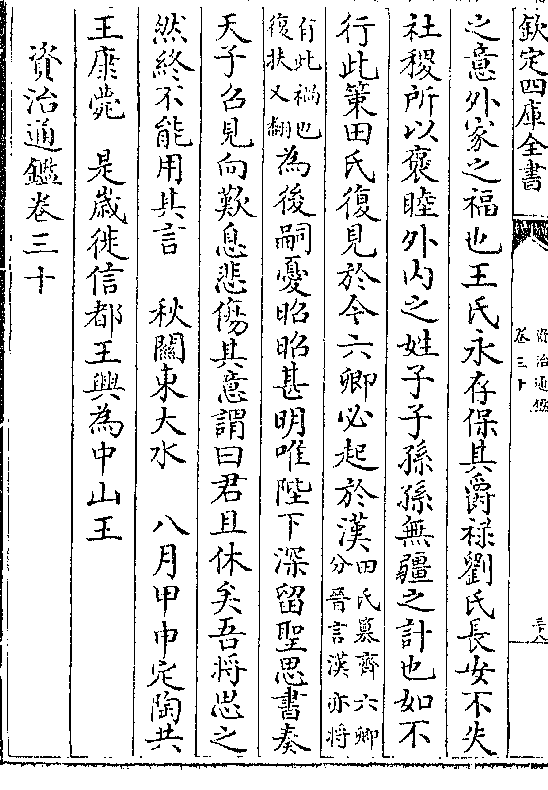 欽定四庫全書
資治通鑑
卷三十
三十八
之意外家之福也王氏永存保其爵祿劉氏長安不失
社稷所以褒睦外内之姓子子孫孫無疆之計也如不
行此策田氏復見於今六卿必起於漢田氏簒齊六卿
分晉言漢亦將
有此禍也
復扶又翻為後嗣憂昭昭甚明唯陛下深留聖思書奏
天子召見向歎息悲傷其意謂曰君且休矣吾將思之
然終不能用其言　秋關東大水　八月甲申定陶共
王康薨　是歲徙信都王興為中山王
資治通鑑卷三十